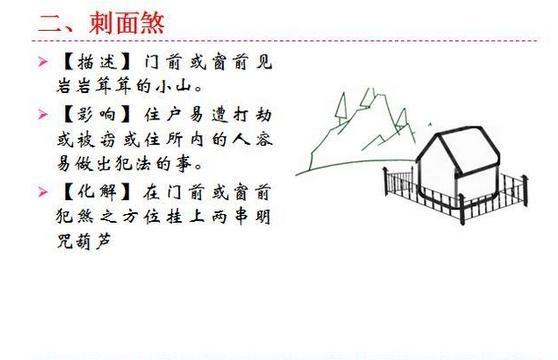 二、刺面煞
【描述】门前或窗前见
岩岩茸茸的小山。
【影响】住户易遭打劫
或被窃或住所内的人容
易做出犯法的事。
【化解】在门前或窗前
犯煞之方位挂上两串明
咒葫芦